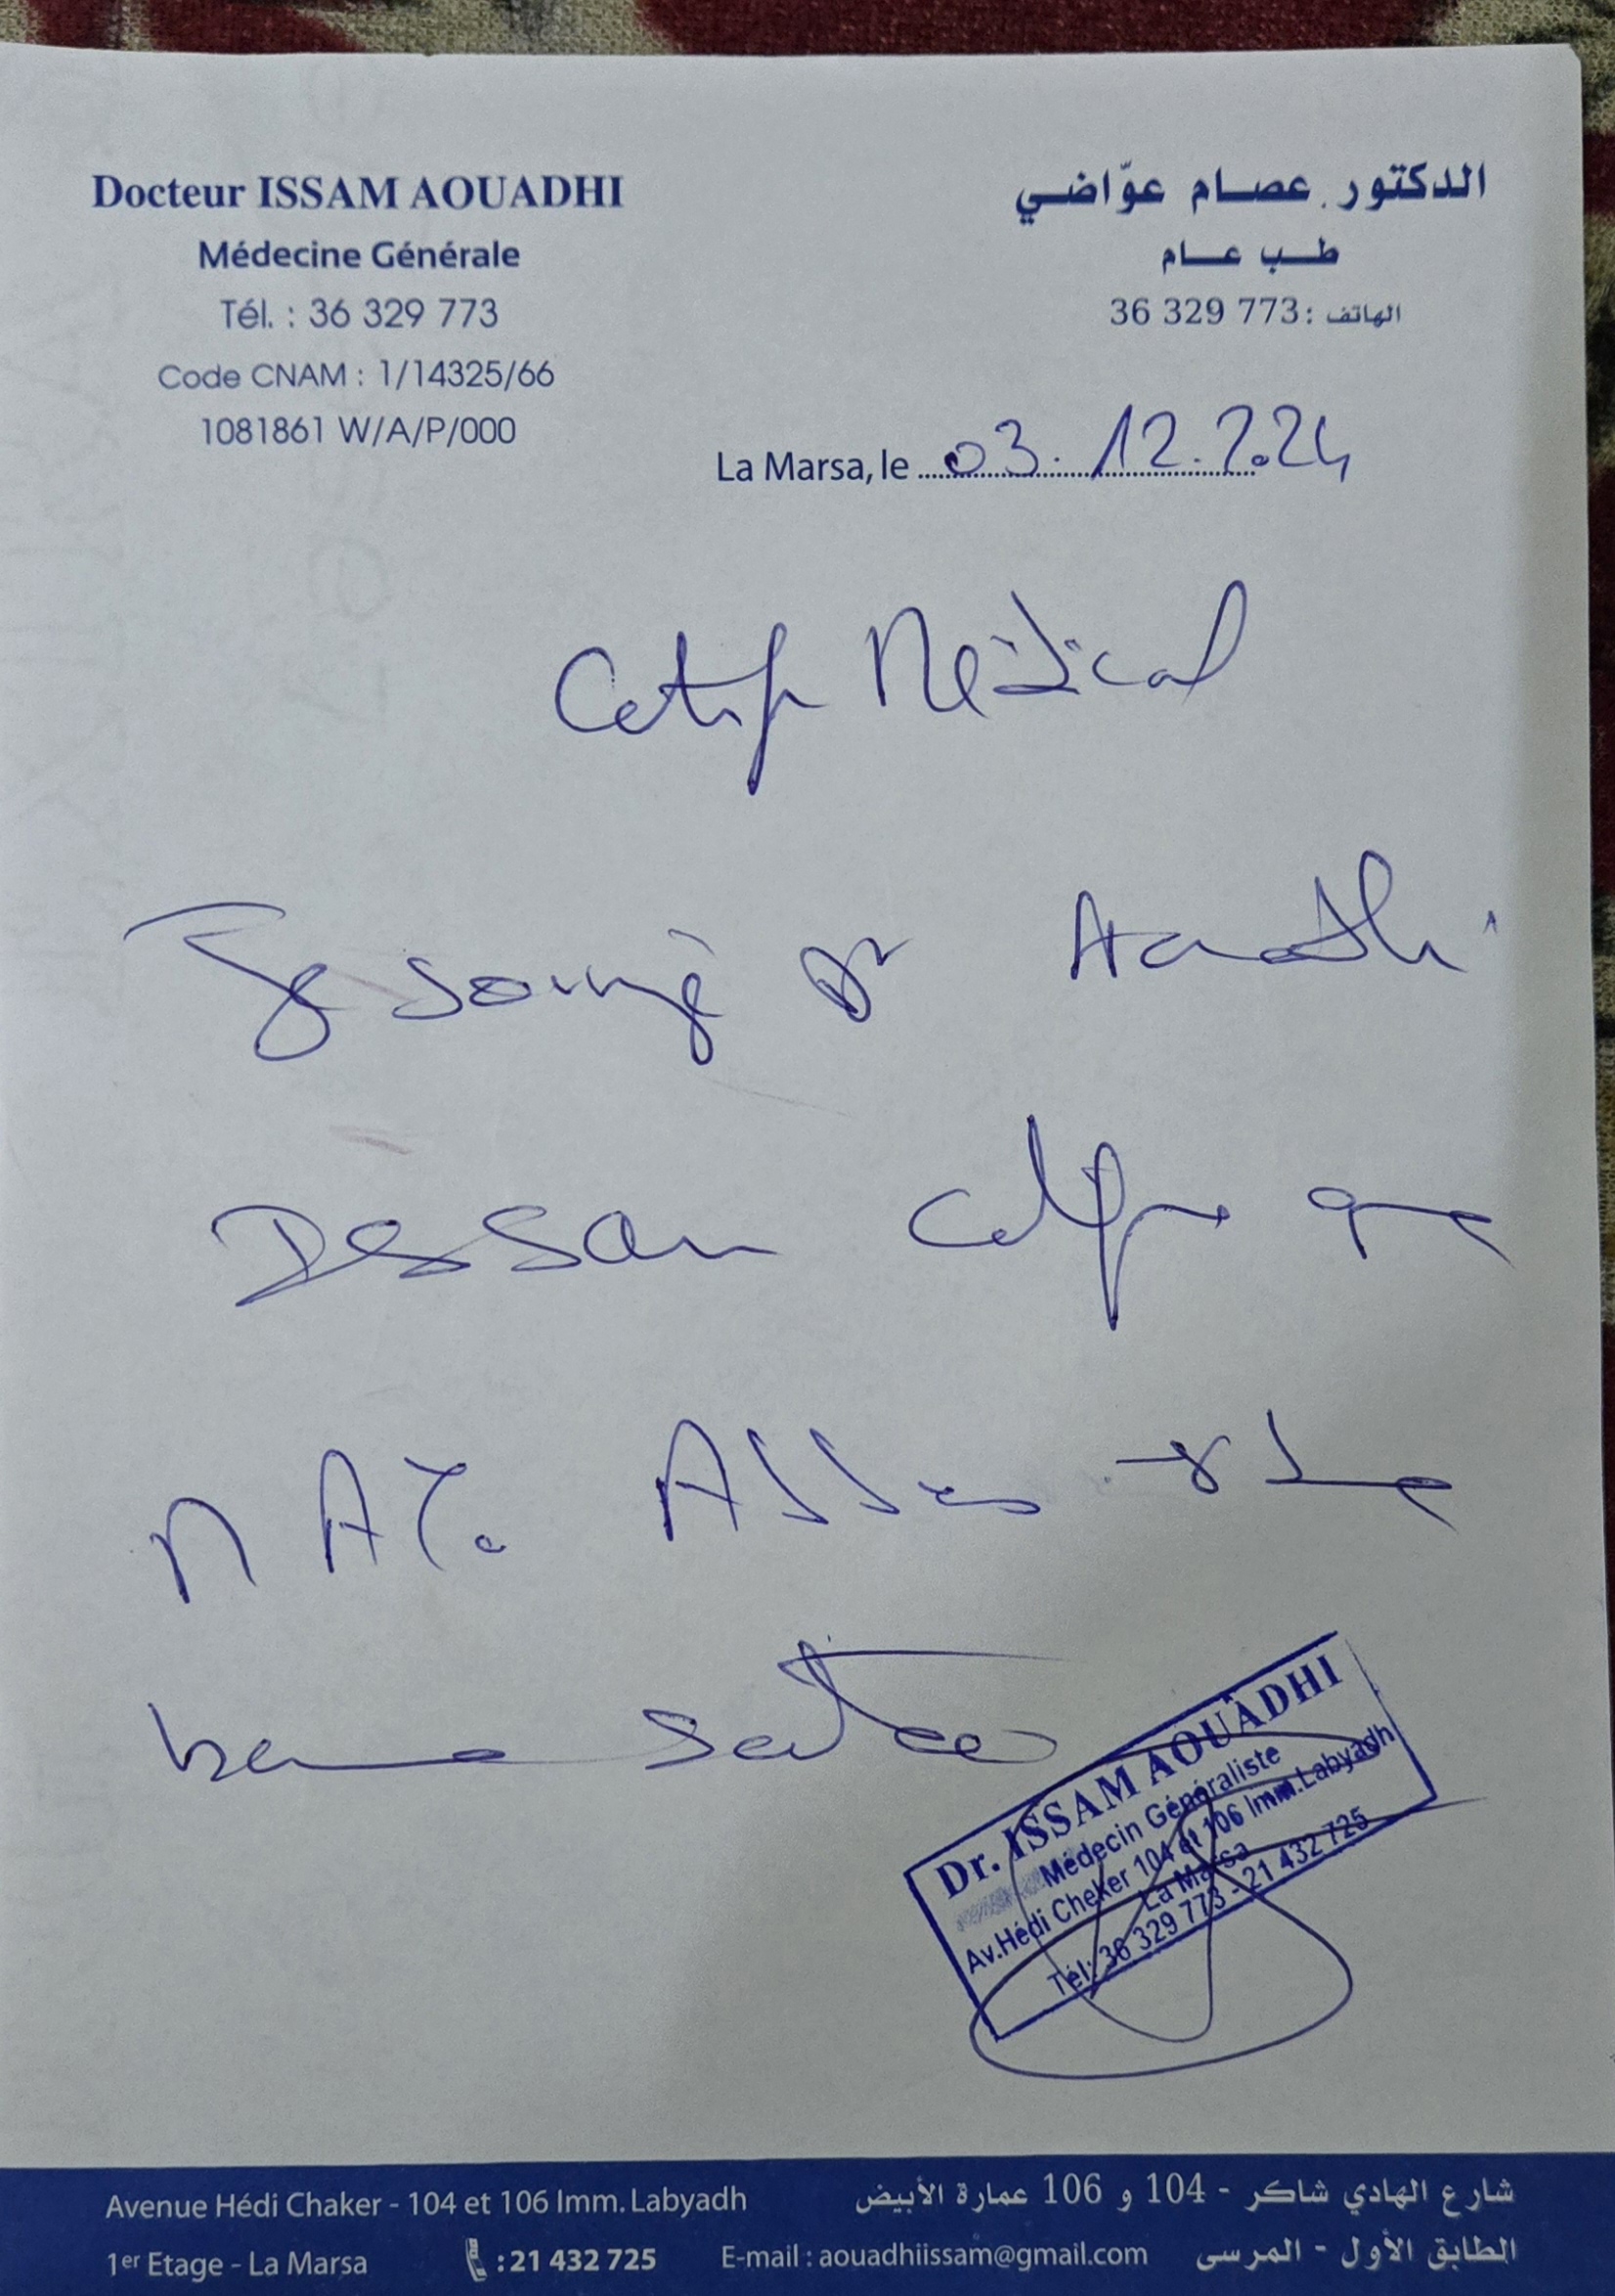 Docteur ISSAM AOUADHI
Médecine Générale
Tél. : 36 329 773
Code CNAM : 1/14325/66
1081861 W/A/P/000
الدكتور عصام عوّاضي
طب عام
الهاتف : 36 329 773
La Marsa, le 03. 12. 2024
Certif Médical
Je soussigné Dr Aouadhi
Issam certifie que
est en
bonne santé
Dr. ISSAM AOUADHI
Médecin Généraliste
Av.Hédi Cheker 104 et 106 Imm.Labyadh
La Marsa
Tél: 36 329 773 - 21 432 725
Avenue Hédi Chaker - 104 et 106 Imm. Labyadh
1er Etage - La Marsa
: 21 432 725
E-mail : aouadhiissam@gmail.com
شارع الهادي شاكر - 104 و 106 عمارة الأبيض
الطابق الأول - المرسى